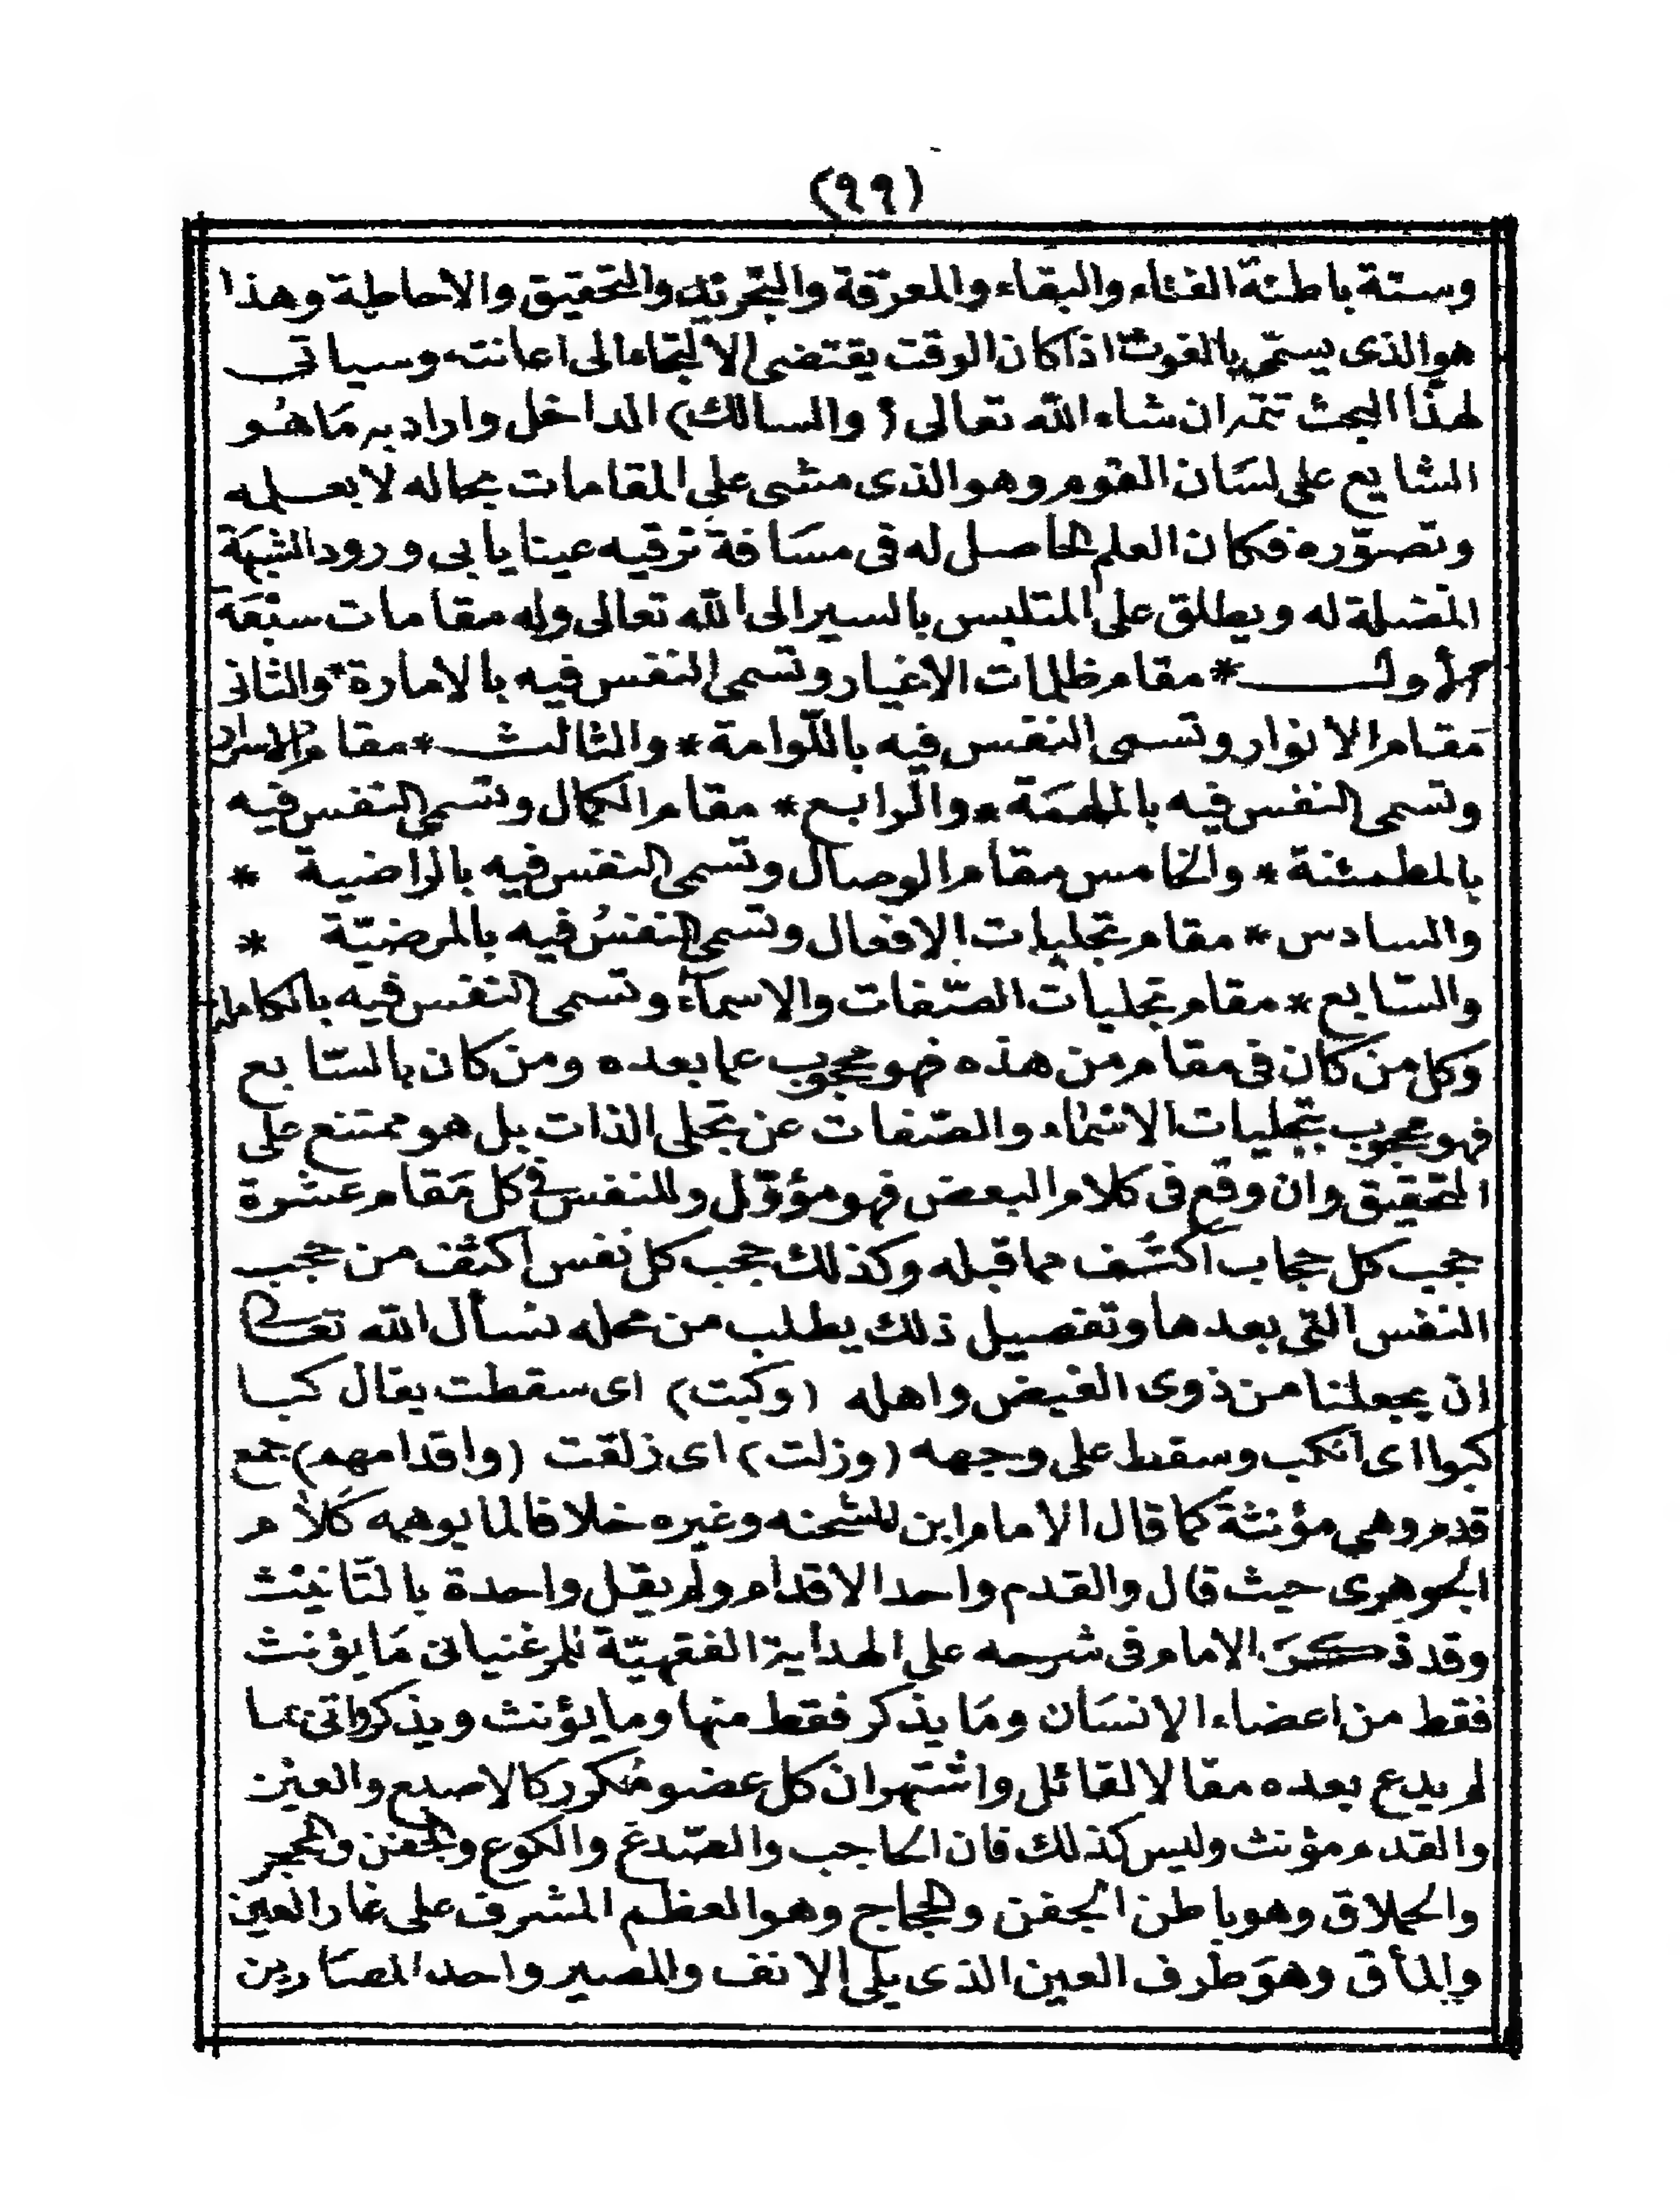 (٩٩)
وستة باطنة الفناء والبقاء والمعرفة والتجريد والتحقيق والاحاطة وهذا
هو الذى يسمّى بالغوث اذا كان الوقت يقتضى الالتجاء الى اعانته وسياتى
لهذا البحث تتمة ان شاء الله تعالى (والسالك) الداخل واراد به مَا هُو
الشايع على لسَان القوم وهو الذى مشى على المقامات بحاله لا بعلمه
وتصوّره فكان العلم الحاصل له فى مسَافة ترقيه عينا يابى ورود الشبهَة
المضلة له ويطلق على المتلبس بالسير الى الله تعالى وله مقامات سبْعَة
الأول * مقام ظلمات الاغيار وتسمى النفس فيه بالامارة * والثانى
مَقام الأنوار وتسمى النفس فيه باللّوامة * والثالث * مقام الاسرار
وتسمى النفس فيه بالملهمَة * والرابع * مقام الكمال وتسمى النفس فيه
بالمطمئنة * والخامس مقام الوصال وتسمى النفس فيه بالراضية *
والسادس * مقام تجليات الافعال وتسمى النفسُ فيه بالمرضيّة *
والسّابع * مقام تجليات الصّفات والاسمآء وتسمى النفس فيه بالكاملة
وَكل من كان فى مقام من هذه فهو محجوب عما بعده ومن كان بالسّابع
فهو محجوب بتجليات الاسْماء والصّفات عن تجلى الذات بل هو ممتنع على
التحقيق وان وقع فى كلام البعض فهو مؤوّل وللنفس فى كل مَقام عشرة
حجب كل حجاب اكشف مما قبله وكذلك حجب كل نفس اكثف من حجب
النفس التى بعدها وتفصيل ذلك يطلب من محله نسأل الله تعالى
ان يجعلنا من ذوى الفيض واهله (وكبت) اى سقطت يقال كبا
كبوا اى انكب وسقط على وجهه (وزلت) اى زلقت (واقدامهم) جمع
قدم وهى مؤنثة كما قال الامام ابن الشحنه وغيره خلافا لما يوهمه كَلاَم
الجوهرى حيث قال والقدم واحد الاقدام ولم يقل واحدة بالتّانيث
وقد ذكرَ الامام فى شرحه على الهداية الفقهيّة للمرغنيانى مَا يؤنث
فقط من اعضاء الانسَان ومَا يذكر فقط منها وما يؤنث ويذكر واتى بما
لم يدع بعده مقالا لقائل واشتهر ان كل عضو مُكرر كالاصبع والعيْن
والقدم مؤنث وليس كذلك فان الحاجب والصّدغ والكوع والجفن والمحجر
والحملاق وهو باطن الجفن والحجاج وهو العظم المشرف على غار العين
والمأق وهوَ طرف العين الذى يلى الانف والمصير واحد المصَارين